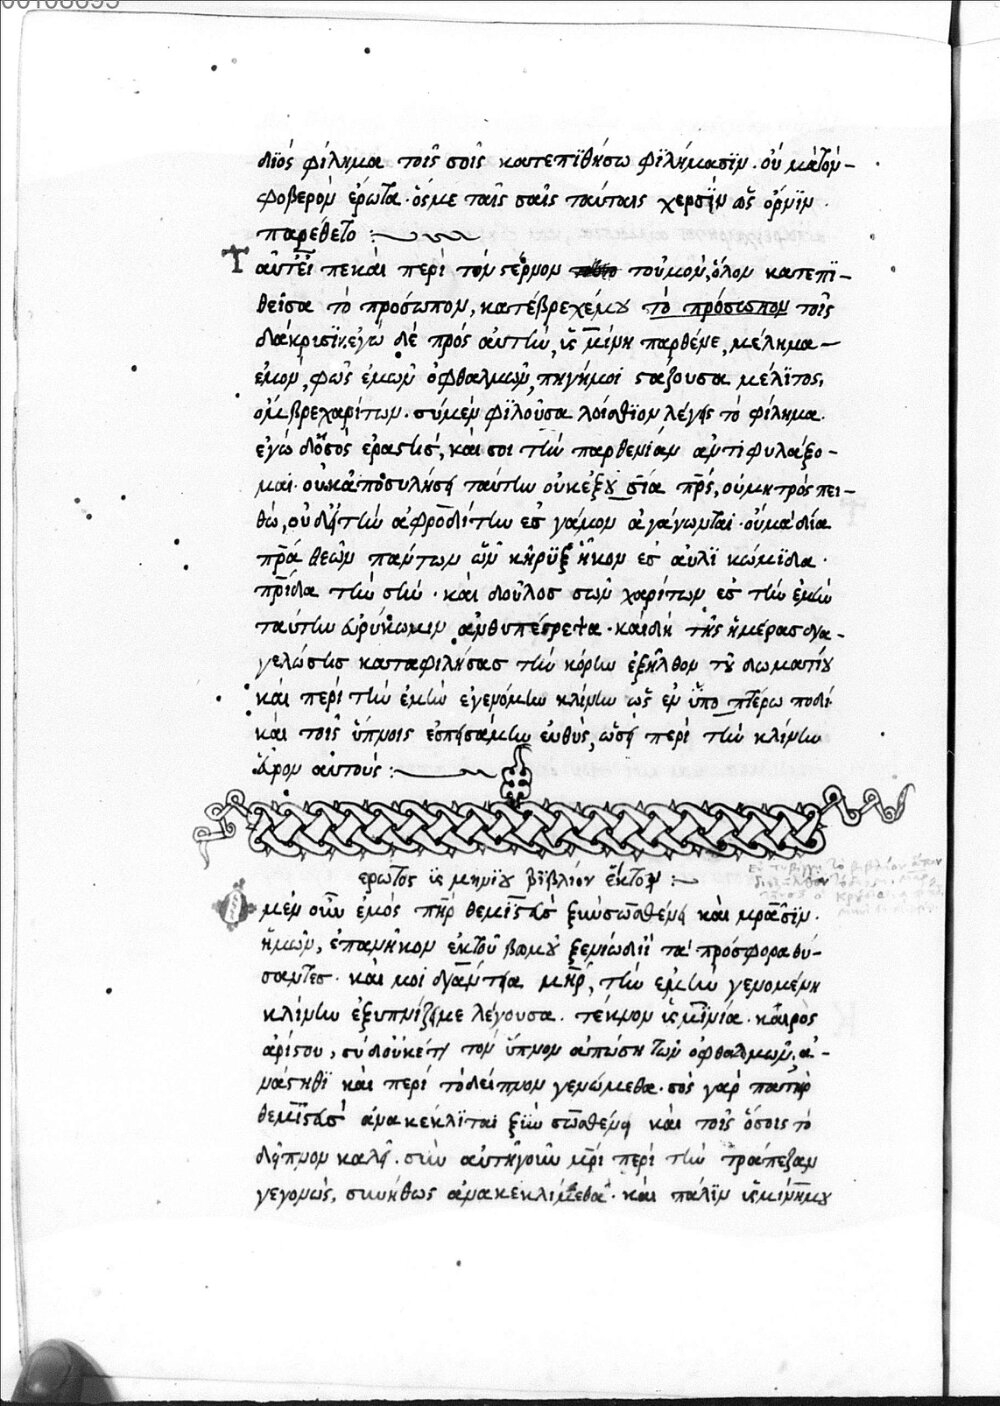 διὸς φίλημα τοῖς σοῖς κατεπϊθήσω φϊλήμασϊν. οὐ μὰ τὸν
φοβερὸν ἔρωτα. ὅς με ταῖς σαῖς ταύταις χερσὶν ὡς ὄρνϊν.
παρέθετο :
Ταῦτ εἶπε καὶ περὶ τὸν στέρνον τοὐμὸν, ὅλον κατεπϊ-
θεῖσα τὸ πρόσωπον, κατέβρεχέ μου τὸ πρόσωπον τοῖς
δάκρυσϊν. ἐγὼ δὲ πρὸς αὐτὴν, ὑσμίνη παρθένε, μέλημα
ἐμὸν, φῶς ἐμῶν ὀφθαλμῶν, πηγή μοι στάζουσα μέλϊτος,
ὄμβρε χαρίτων. σὺ μὲν φϊλοῦσα λοίσθϊον λέγης τὸ φίλημα.
ἐγὼ δ' ὅσος ἐραστὴς, καὶ σοι τὴν παρθενίαν ἀντιφυλάξο-
μαι. οὐκ ἀποσυλήσῃ ταύτην οὐκ ἐξουσία πρς, οὐ μητρὸς πει-
θὼ, οὐδ' ἢν τὴν ἀφροδίτην ἐς γάμον ἀγάγωνται. οὐ μὰ δία
πρα θεῶν πάντων ὧν κήρϋξ ἧκον ἐς αὐλϊκώμϊδα.
πρίδα τὴν σὴν. καὶ δοῦλος σῶν χαρίτων ἐς τὴν ἐμὴν
ταύτην εὐρύκωμιν ἀνθυπέρεψα. καὶ δὴ τῆς ἡμέρας δια-
γελώσης καταφιλήσας τὴν κόρην ἐξῆλθον τοῦ δωματίου
καὶ περὶ τὴν ἐμὴν ἐγενόμην κλίνην ὡς ἐν ὑποπτέρω ποδὶ
καὶ τοῖς ὕπνοις ἐσπησάμην εὐθὺς, ὡσεὶ περὶ τὴν κλίνην
εὗρον αὐτούς :
ἔρωτος ὑσμήνης βϊβλίον ἕκτον :
Ὁ μὲν οὖν ἐμὸς πηρ θεμιστεὺς ξὺν σωσθένη καὶ μρασϊν.
ἡμῶν, ἐπανῆκον ἐκ τοῦ βωμοῦ ξενίω διῒ τὰ πρόσφορα θύ-
σαντες. καὶ μοι διαντεία μηρ, τὴν ἐμὴν γενομένη
κλίνην ἐξυπνίζει με λέγουσα. τέκνον ὑσμϊνία. καιρὸς
ἀρίστου, σὺ δ' οὐκέτι τὸν ὕπνον ἀπώση τῶν ὀφθαλμῶν, ἀ-
νάστηθϊ καὶ περὶ τὸ δεῖπνον γενώμεθα. σὸς γὰρ πατὴρ
θεμϊστεὺς ἀνακέκλϊται ξὺν σωσθένη καὶ τοῖς ὅσοις τὸ
δεῖπνον καλεῖ. σὺν αὐτῇ γοῦν μρὶ περὶ τὴν τράπεζαν
γεγονὼς, συνήθως ἀνακεκλίμεθα. καὶ πάλϊν ὑσμίνη μου